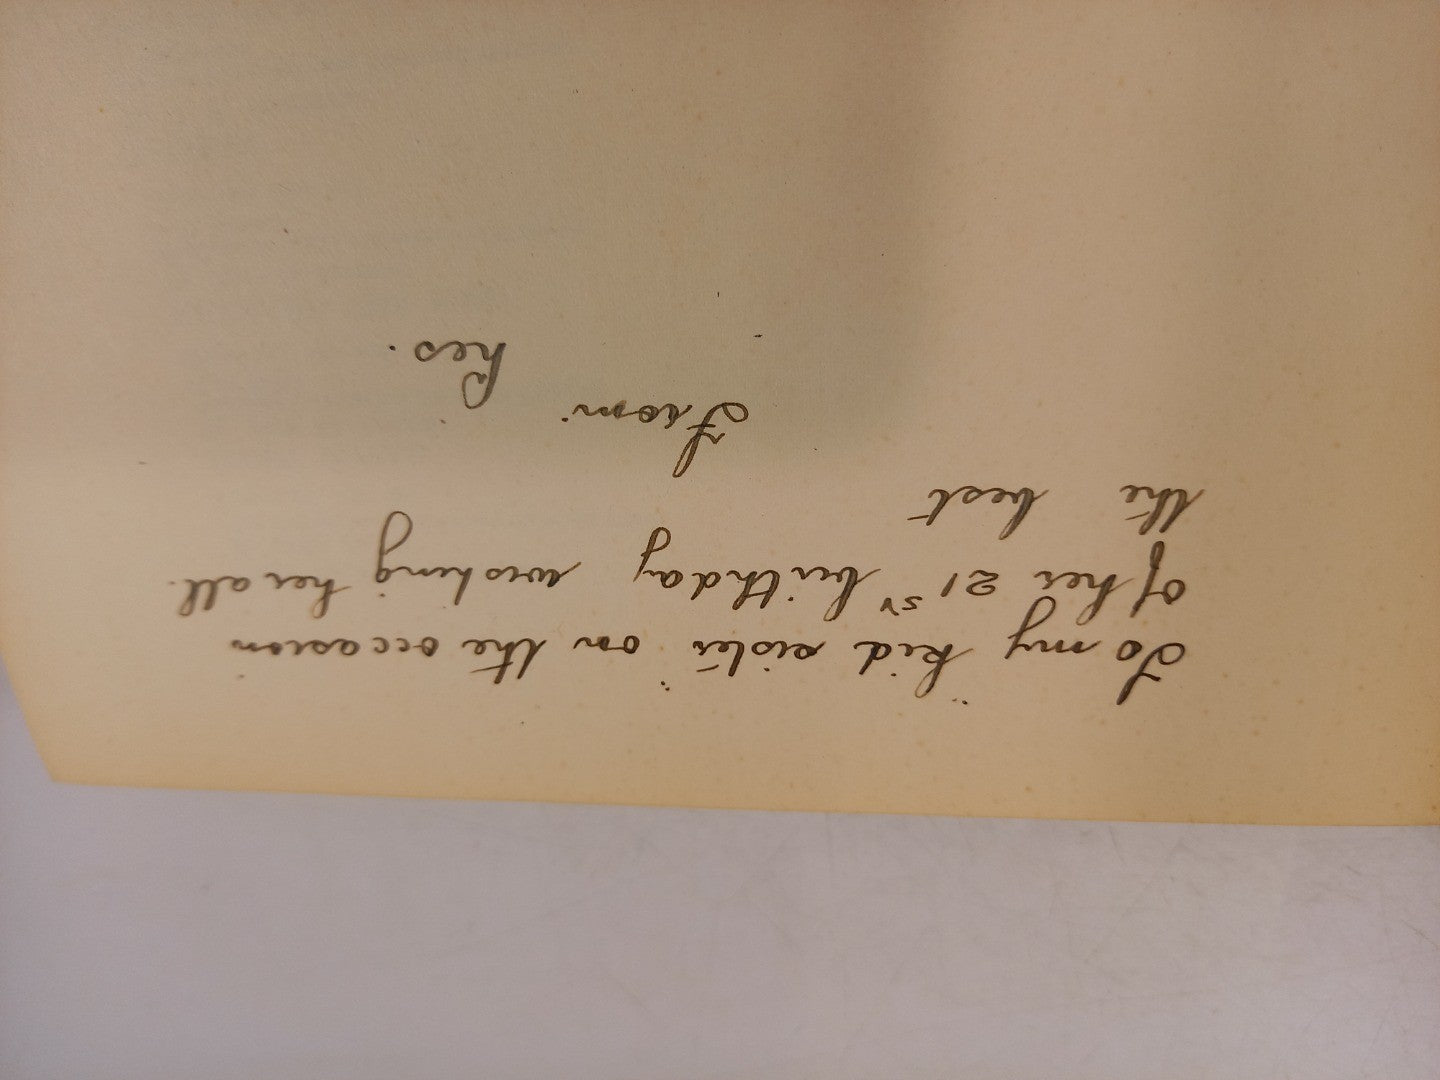 To my "kid sister" on the occasion
of her 21st birthday wishing her all
the best
From